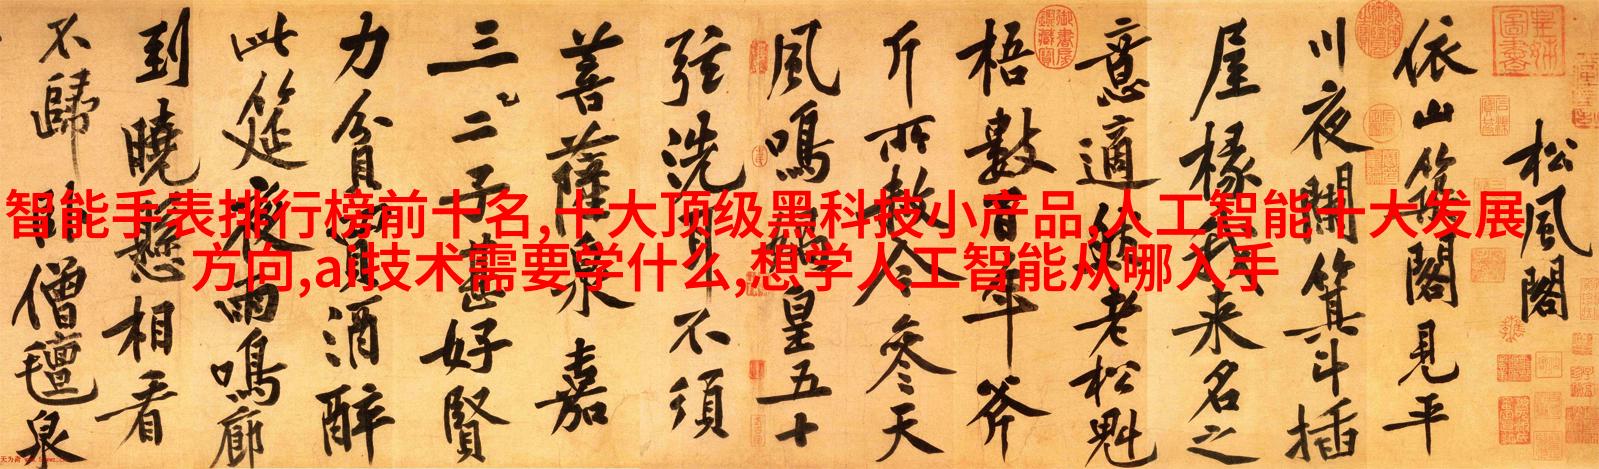 松風閣
依山築閣見平
川夜闌箕斗插
屋椽我來名之
意適然老松魁
梧數百年斧
斤所赦今參天
風鳴媧皇五十
弦洗耳不須
菩薩泉嘉
三二子甚好賢
力貧買酒醉
此筵夜雨鳴廊
到曉懸相看
不歸臥僧氈泉
智能手表排行榜前十名,十大顶级黑科技小产品,人工智能十大发展
方向,ai技术需要学什么,想学人工智能从哪入手